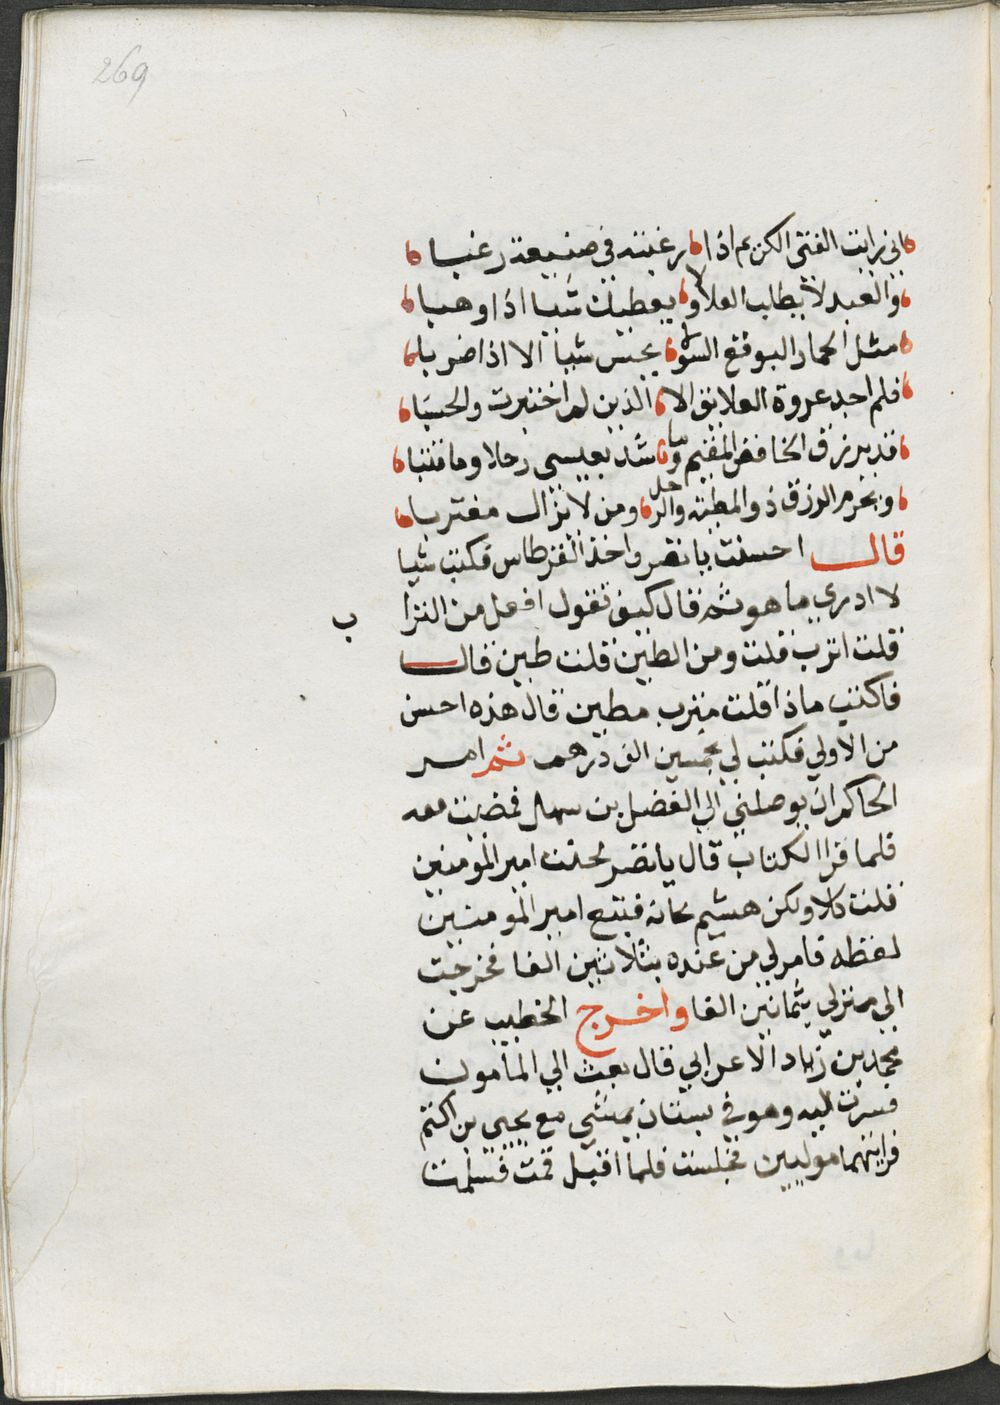 269
اني رايت الفتى الكريم اذا رغبته في صنيعة رغبا
والعبد لا يطلب العلاو لا يعطيك شيا اذا وهبا
مثل الحمار الموقع السو لا يحسن شيا الا اذا ضربا
فلم اجد عروة العلايق الا الذين لما اختبرت والحسبا
قد يرزق الخافض المقيم وما شد بعيسى رحلا وما قتبا
ويحرم الرزق ذو المطية والرحل ومن لا يزال مغتربا
قال احسنت يا نضر واخذ القرطاس فكتب شيا
لا ادري ما هو ثم قال كيف تقول افعل من الترا
ب
قلت اترب قلت ومن الطين قلت طين قال
فالكتب ماذا قلت مترب مطين قال هذه احسن
من الاولي فكتب لي بخمسين الف درهم ثم امر
الخاكم ان يوصلني الي الفضل بن سهل فمضيت معه
فلما قرا الكتاب قال يا نضر لحنت امير المومنين
قلت كلا ولكن هشيم لحانه فتبع امير المومنين
لفظه فامر لي من عنده بثلاثين الفا فخرجت
الي منزلي بثمانين الفا واخرج الخطيب عن
محمد بن زياد الاعرابي قال بعث الي المامون
فسرت اليه وهو في بستان يمشي مع يحيى بن اكثم
فرايتهما موليين فجلست فلما اقبل قمت فسلمت